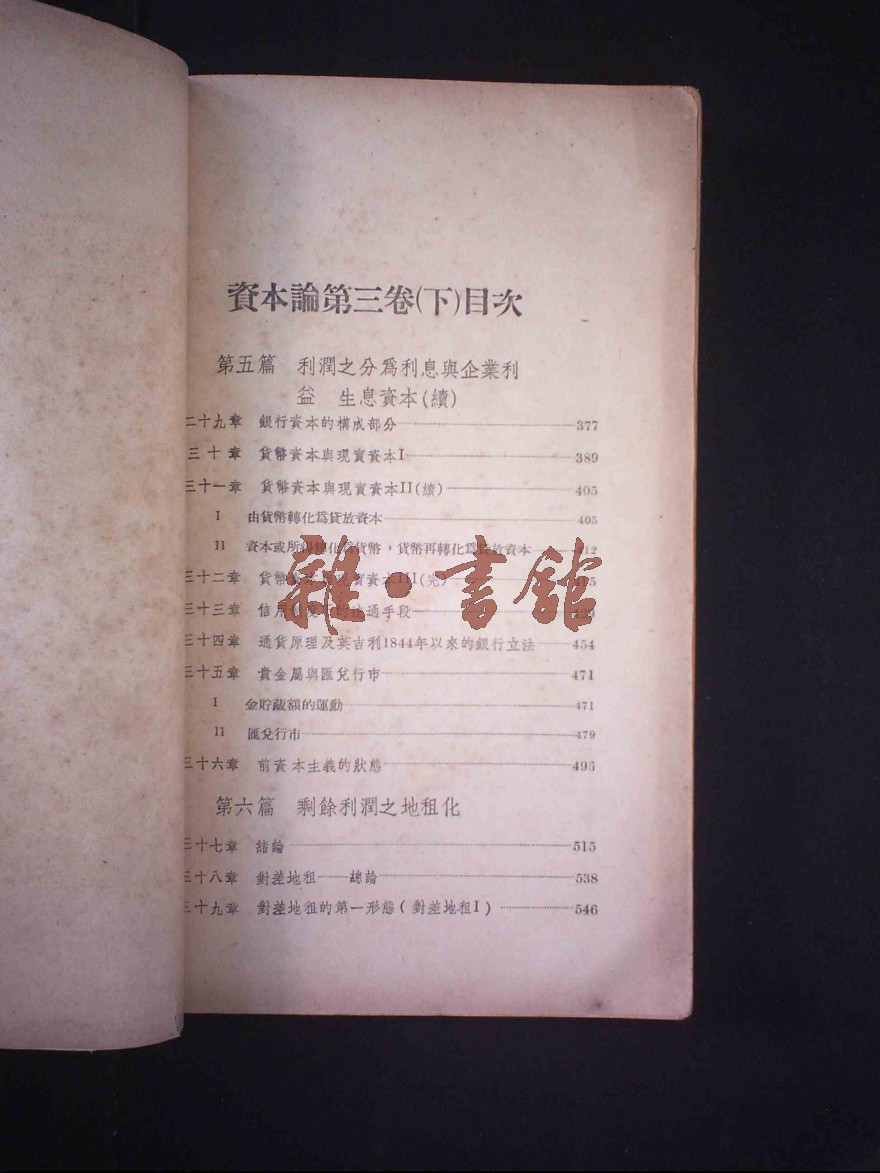 資本論第三卷(下)目次
第五篇 利潤之分爲利息與企業利
益 生息資本(續)
二十九章 銀行資本的構成部分 377
三十章 貨幣資本與現實資本I 389
三十一章 貨幣資本與現實資本II(續) 405
I 由貨幣轉化爲貸放資本 405
II 資本或所得轉化爲貨幣，貨幣再轉化爲貸放資本
三十二章 貨幣資本與現實資本III(完)
三十三章 信用制度下的流通手段
三十四章 通貨原理及英吉利1844年以來的銀行立法 454
三十五章 貴金屬與匯兌行市 471
I 金貯藏額的運動 471
II 匯兌行市 479
三十六章 前資本主義的狀態
第六篇 剩餘利潤之地租化
三十七章 緒論 515
三十八章 對差地租——總論 538
三十九章 對差地租的第一形態(對差地租I) 546
雜·書館